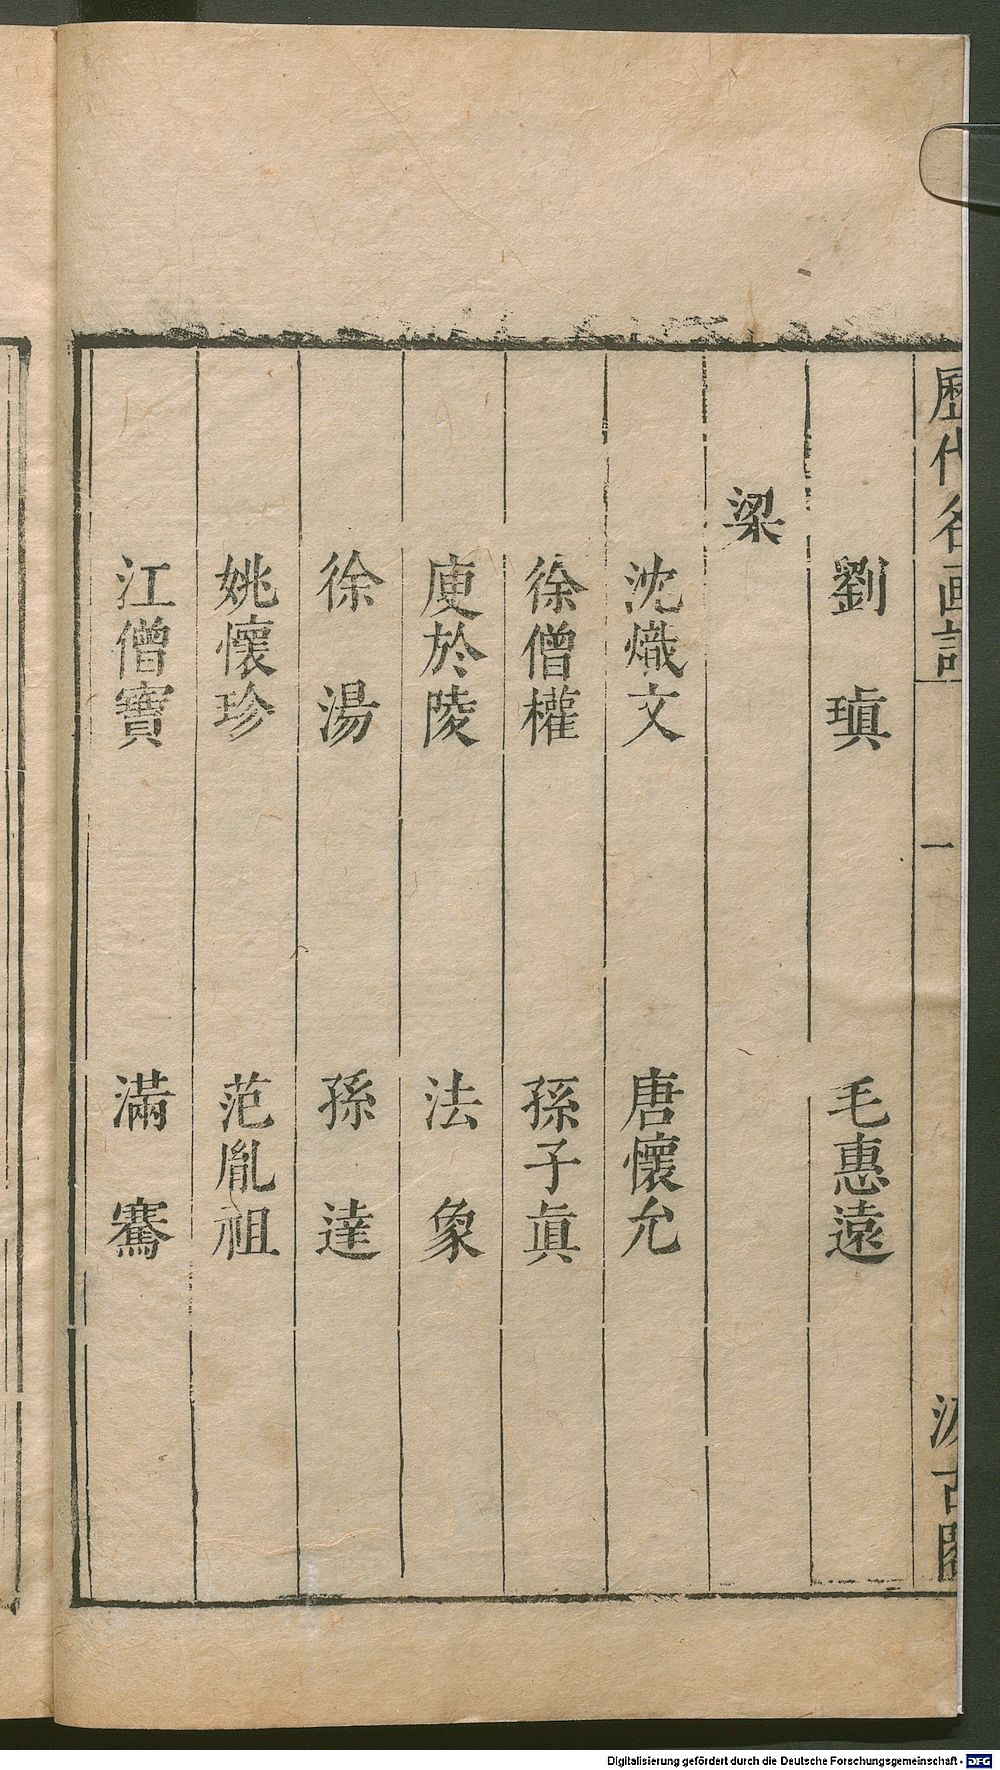 歷代名画記 一 汲古閣
劉瑱 毛惠遠
梁
沈熾文 唐懷允
徐僧權 孫子眞
庾於陵 法象
徐湯 孫達
姚懷珍 范胤祖
江僧寶 滿騫
Digitalisierung gefördert durch die Deutsche Forschungsgemeinschaft - DFG